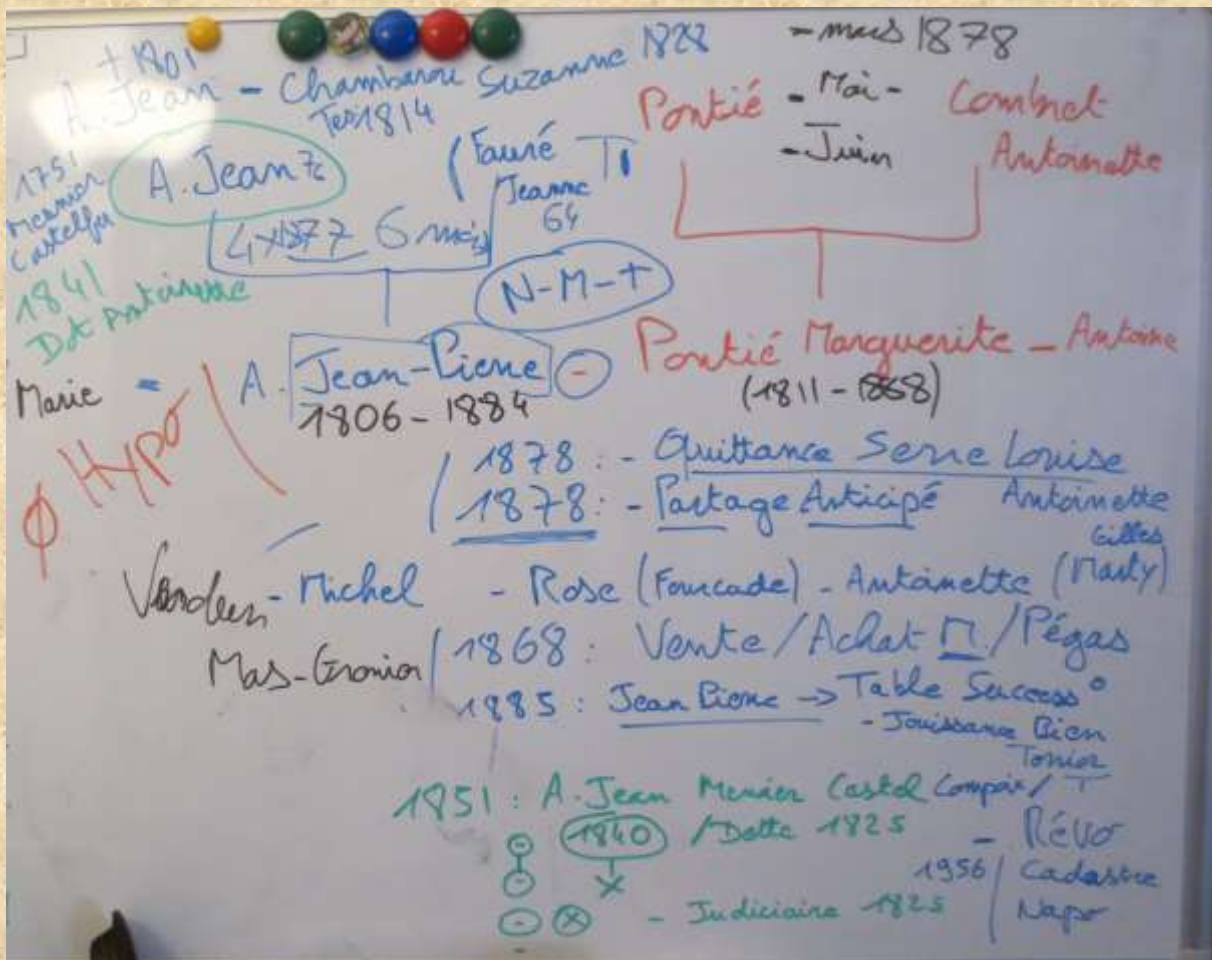 + 1801
A. Jean - Chambarou Suzanne 1828
Tes 1814
- mars 1878
Pontié - Mai - Combret
- Juin Antoinette
1751
Meunier
A. Jean 76
(Fauré T1
Jeanne
64
4x1877 6 mois
1841
Dot Antoinette
N-M-+
Marie = A. Jean-Pierre - Pontié Marguerite - Antoine
1806 - 1884 (1811-1868)
Ø Hypo
1878 : - Quittance Serre Louise
1878 : - Partage Anticipé Antoinette
Gilles
- Michel - Rose (Fourcade) - Antoinette (Marty)
Mas-Grenier
1868 : Vente/Achat M./Pégas
1885 : Jean Pierre -> Table Success°
- Jouissance Bien
1851 : A. Jean Meunier Castel Compoix / T
1840 /Dette 1825 - Révo
1956 / Cadastre
- Judiciaire 1825 Napo